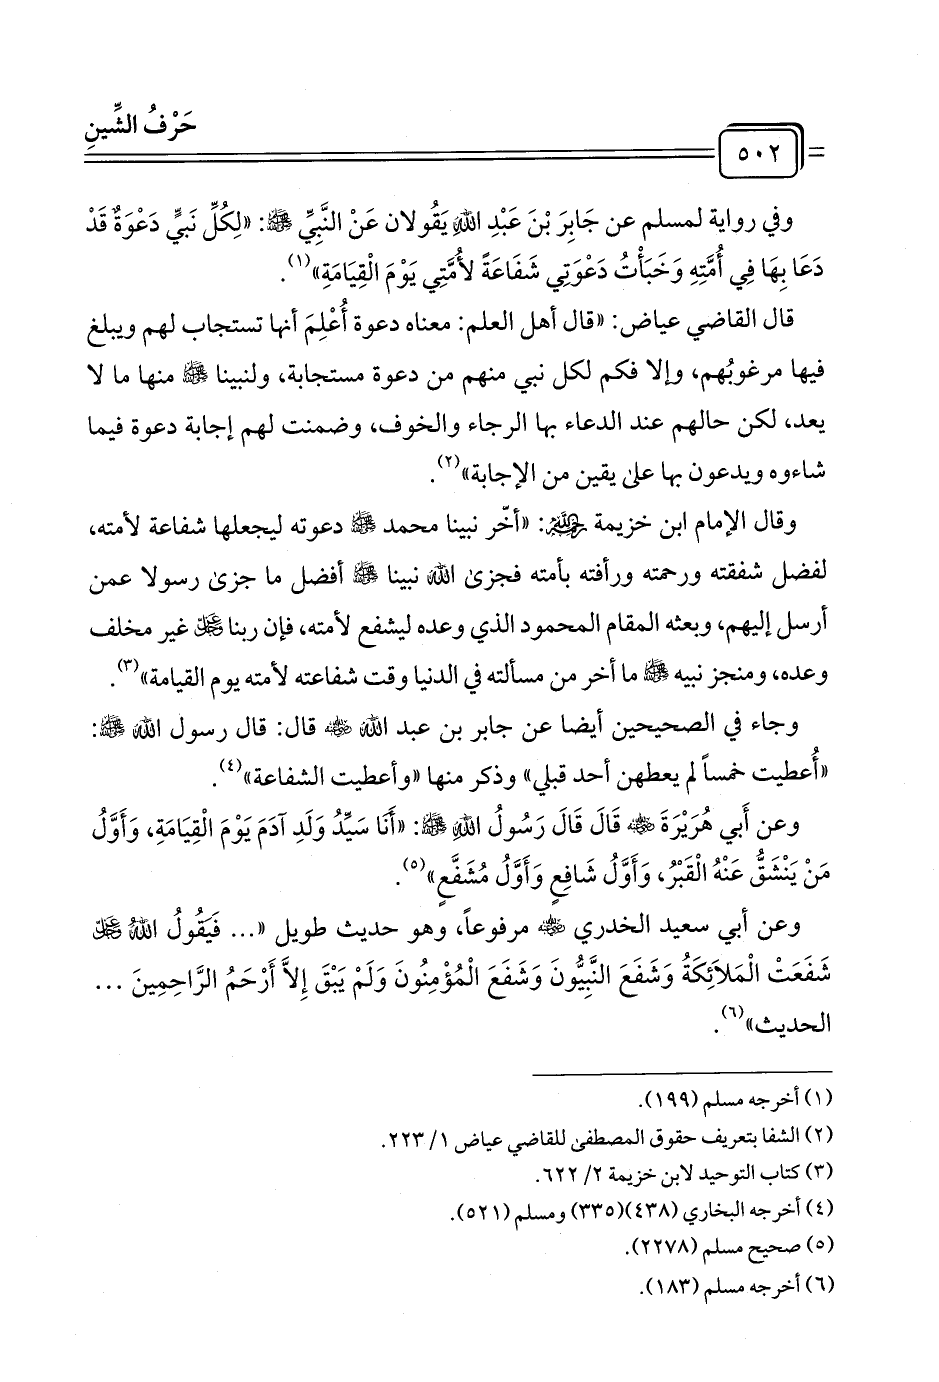 حَرْفُ الشِّينِ
٥٠٢
وفي رواية لمسلم عن جَابِرَ بْنَ عَبْدِ اللهِ يَقُولان عَنْ النَّبِيِّ ﷺ: «لِكُلِّ نَبِيٍّ دَعْوَةٌ قَدْ
دَعَا بِهَا فِي أُمَّتِهِ وَخَبَأْتُ دَعْوَتِي شَفَاعَةً لأُمَّتِي يَوْمَ الْقِيَامَةِ»(١).
قال القاضي عياض: «قال أهل العلم: معناه دعوة أُعْلِمَ أنها تستجاب لهم ويبلغ
فيها مرغوبُهم، وإلا فكم لكل نبي منهم من دعوة مستجابة، ولنبينا ﷺ منها ما لا
يعد، لكن حالهم عند الدعاء بها الرجاء والخوف، وضمنت لهم إجابة دعوة فيما
شاءوه ويدعون بها على يقين من الإجابة»(٢).
وقال الإمام ابن خزيمة رحمه الله: «أخّر نبينا محمد ﷺ دعوته ليجعلها شفاعة لأمته،
لفضل شفقته ورحمته ورأفته بأمته فجزى الله نبينا ﷺ أفضل ما جزى رسولا عمن
أرسل إليهم، وبعثه المقام المحمود الذي وعده ليشفع لأمته، فإن ربنا عز وجل غير مخلف
وعده، ومنجز نبيه ﷺ ما أخر من مسألته في الدنيا وقت شفاعته لأمته يوم القيامة»(٣).
وجاء في الصحيحين أيضا عن جابر بن عبد الله رضي الله عنه قال: قال رسول الله ﷺ:
«أُعطيت خمساً لم يعطهن أحد قبلي» وذكر منها «وأعطيت الشفاعة»(٤).
وعن أَبي هُرَيْرَةَ رضي الله عنه قَالَ قَالَ رَسُولُ اللهِ ﷺ: «أَنَا سَيِّدُ وَلَدِ آدَمَ يَوْمَ الْقِيَامَةِ، وَأَوَّلُ
مَنْ يَنْشَقُّ عَنْهُ الْقَبْرُ، وَأَوَّلُ شَافِعٍ وَأَوَّلُ مُشَفَّعٍ»(٥).
وعن أبي سعيد الخدري رضي الله عنه مرفوعاً، وهو حديث طويل «... فَيَقُولُ اللهُ عز وجل
شَفَعَتْ الْمَلاَئِكَةُ وَشَفَعَ النَّبِيُّونَ وَشَفَعَ الْمُؤْمِنُونَ وَلَمْ يَبْقَ إِلاَّ أَرْحَمُ الرَّاحِمِينَ ...
الحديث»(٦).
(١) أخرجه مسلم (١٩٩).
(٢) الشفا بتعريف حقوق المصطفى للقاضي عياض ١/ ٢٢٣.
(٣) كتاب التوحيد لابن خزيمة ٢/ ٦٢٢.
(٤) أخرجه البخاري (٤٣٨)(٣٣٥) ومسلم (٥٢١).
(٥) صحيح مسلم (٢٢٧٨).
(٦) أخرجه مسلم (١٨٣).